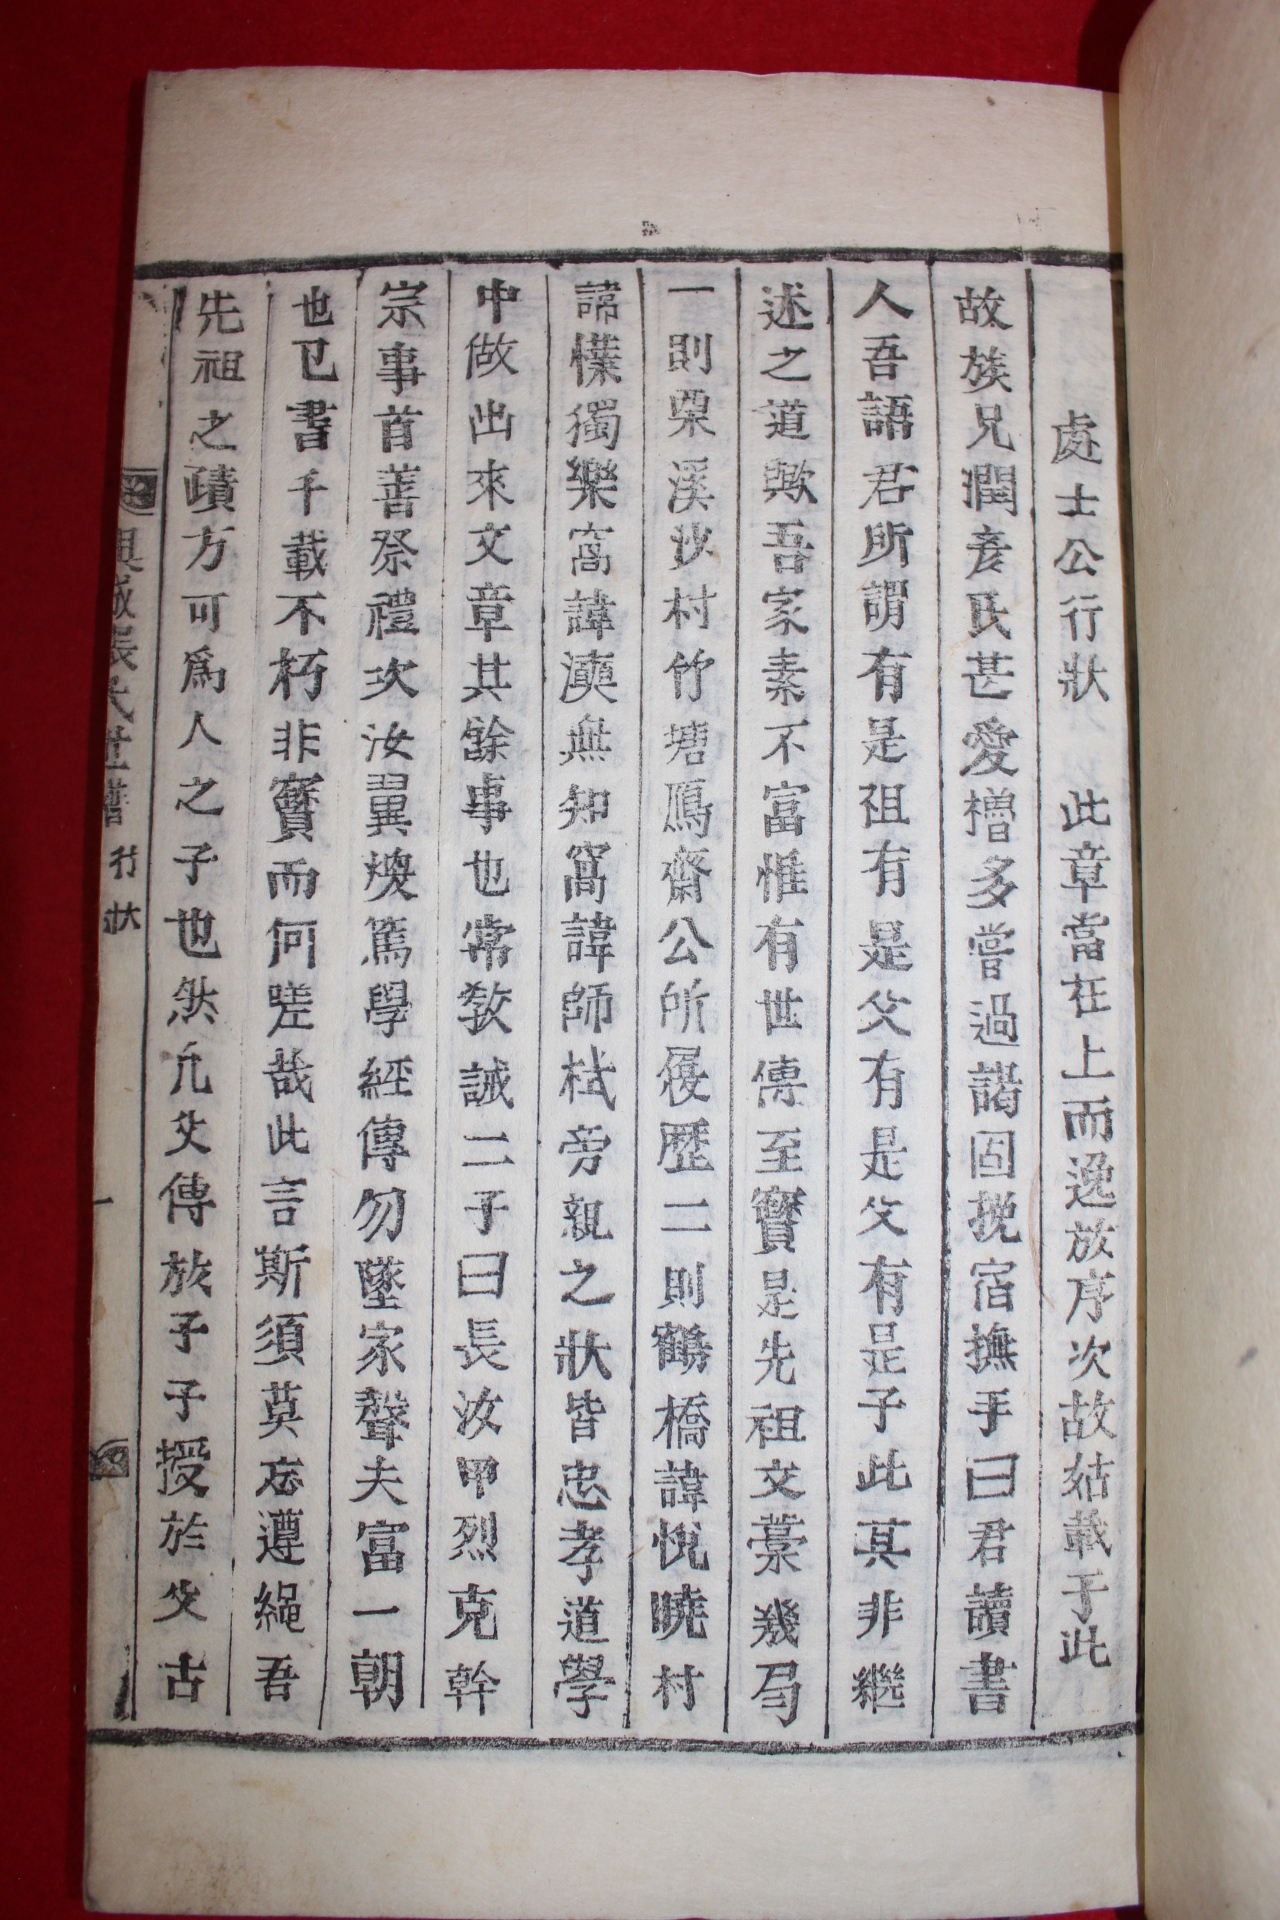 處士公行狀 此章當在上而逸放序次故姑載于此
故族兄潤彦氏甚愛橧多嘗過謁固挽宿撫手曰君讀書
人吾語君所謂有是祖有是父有是父有是子此莫非繼
述之道歟吾家素不富惟有世傳至寶是先祖文藁幾局
一則栗溪沙村竹塘鴈齋公所履歷二則鶴橋諱悅曉村
諱檏獨樂窩諱澒無知窩諱師栻旁親之狀皆忠孝道學
中做出來文章其餘事也常敎誡二子曰長汝甲烈克幹
宗事首善祭禮次汝翼煥篤學經傳勿墜家聲夫富一朝
也已書千載不朽非寶而何嗟哉此言斯須莫忘遵繩吾
先祖之蹟方可爲人之子也然凡父傳於子子授於父古
興城張氏世譜 行狀 一